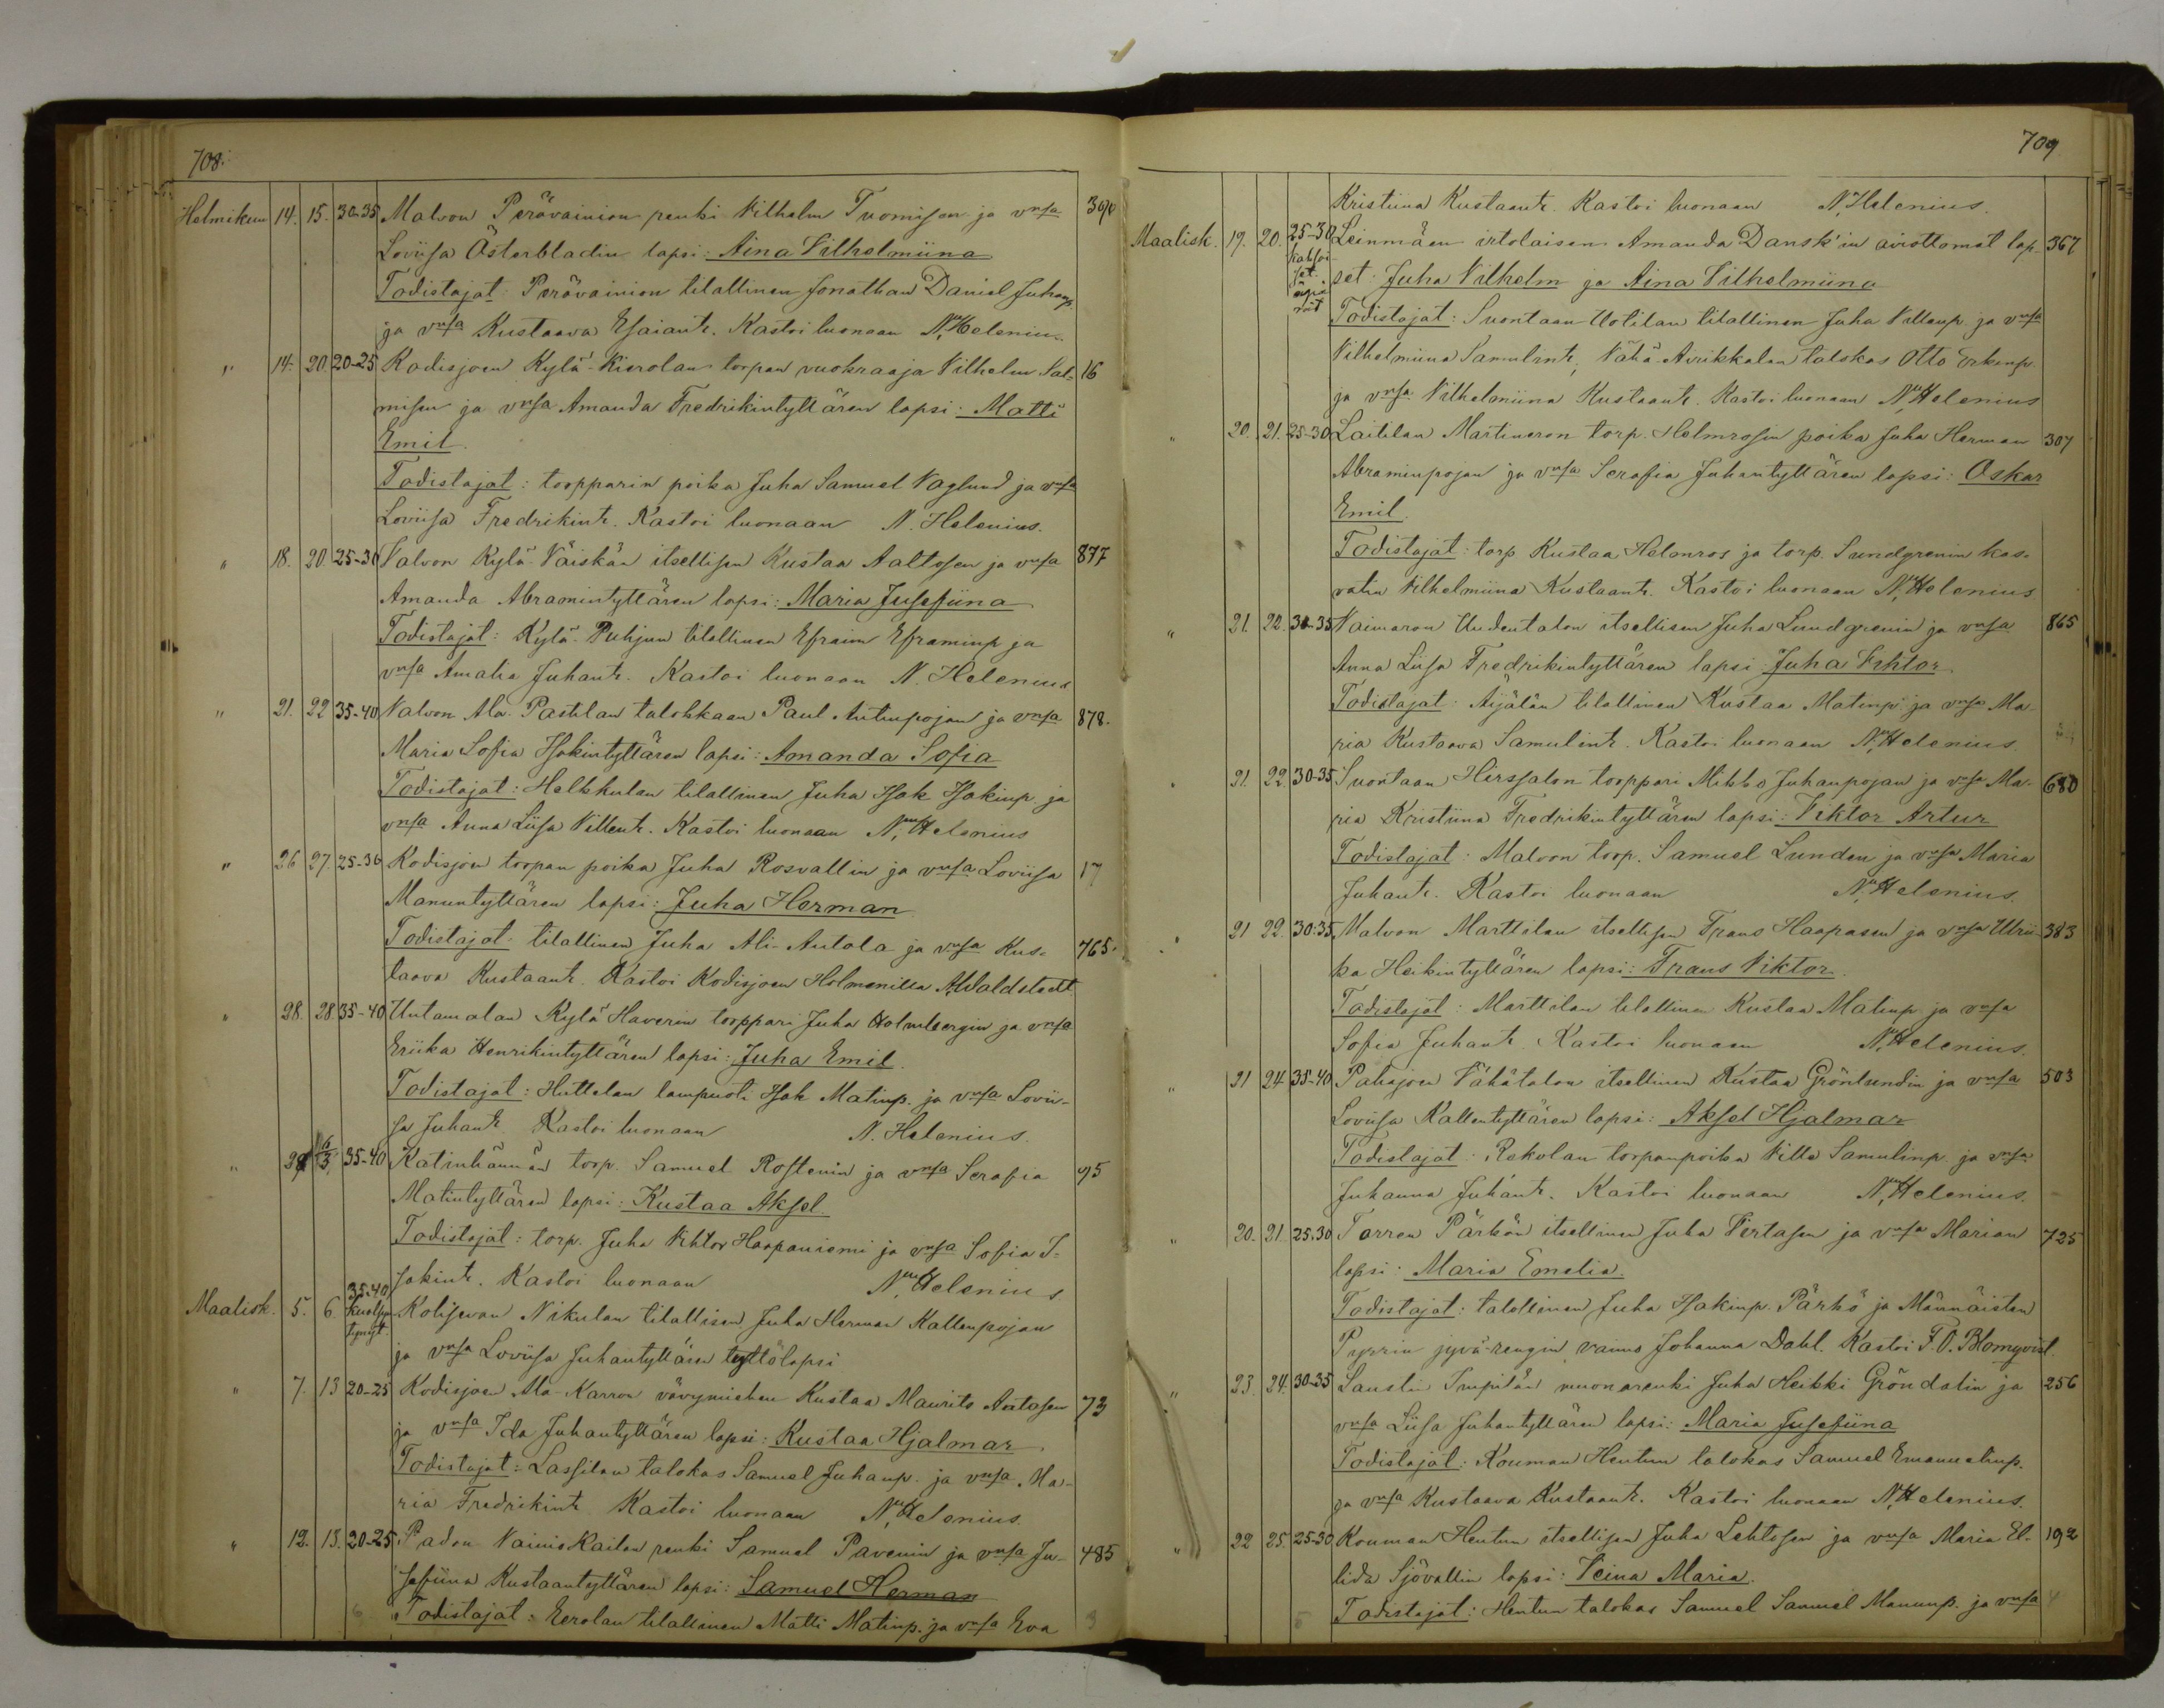 708.
Helmikuu 14. 15. 30-35 Malvon Perävainion renki Vilhelm Tuomisen ja vnsa 390
Loviisa Österbladin lapsi: Aina Vilhelmiina
Todistajat: Perävainion tilallinen Jonathan Daniel Juhanp.
ja vnsa Kustaava Esaiantr. Kastoi luonaan N. Helenius.
" 14. 20. 20-25 Kodisjoen Kylä-Kierolan torpan vuokraaja Vilhelm Sal- 16
misen ja vnsa Amanda Fredrikintyttären lapsi: Matti
Emil.
Todistajat: toopparin poika Juha Samuel Vaglund ja vnsa
Loviisa Fredrikintr. Kastoi luonaan N. Helenius.
" 18. 20. 25-30 Valvon Kylä-Väiskän itsellisen Kustaa Aaltosen ja vnsa 877
Amanda Abramintyttären lapsi: Maria Josefiina
Todistajat: Kylä-Puhjun tilallinen Efraim Eframinp ja
vnsa Amalia Juhantr. Kastoi luonaan N. Helenius
" 21. 22 35-40 Valvon Ala-Pastilan talokkaan Paul Antinpojan ja vnsa 878.
Maria Sofia Isakintyttären lapsi: Amanda Sofia
Todistajat: Helkkulan tilallinen Juha Isak Isakinp. ja
vnsa Anna Liisa Villentr. Kastoi luonaan N. Helenius
" 26 27. 25-30 Kodisjoen torpan poika Juha Rosvallin ja vnsa Loviisa 17
Manuntyttären lapsi: Juha Herman.
Todistajat: tilallinen Juha Ali-Antola ja vnsa Kus- 765.
taava Kustaantr. Kastoi Kodisjoen Holmenilla A. Waldstedt.
" 28. 28 35-40 Untamalan Kylä Haverin torppari Juha Holmbergin ja vnsa
Eriika Henrikintyttären lapsi: Juha Emil.
Todistajat: Huttalan lampuoti Isak Matinp. ja vnsa Lovii-
sa Juhantr. Kastoi luonaan N. Helenius.
" 28 6/3 35-40 Katinhännän torp. Samuel Rostenin ja vnsa Serafia 95
Matintyttären lapsi: Kustaa Aksel
Todistajat: torp. Juha Viktor Haapaniemi ja vnsa Sofia I-
sakintr. Kastoi luonaan N. Helenius.
Maalisk. 5. 6 35-40 Kuolleena syntynyt. Kolisevan Nikulan tilallisen Juha Herman Kallenpojan
ja vnsa Loviisa Juhantyttären tyttölapsi
" 7. 13 20-25 Kodisjoen Ala-Karron vävymiehen Kustaa Maurits Antosen 73
ja vnsa Ida Juhantyttären lapsi: Kustaa Hjalmar.
Todistajat: Lassilan talokas Samuel Juhanp. ja vnsa Ma-
ria Fredrikintr. Kastoi luonaan N. Helenius.
" 12. 13. 20-25 Padon Vainio Kailan renki Samuel Pavenin ja vnsa Jo- 485
sefiina Kustaantyttären lapsi: Samuel Herman
Todistajat: Eerolan tilallinen Matti Matinp. ja vnsa Eva
709
Kristiina Kustaantr. Kastoi luonaan N. Helenius.
Maalisk. 19. 20. 25-30 kaksoiset Leinmäen irtolaisen Amanda Dansk'in aviottomat lap- 367
set: Juha Vilhelm ja Aina Vilhelmiina
Todistajat: Suontaan Uotilan tilallinen Juha Villenp. ja vnsa
Vilhelmiina Samulintr, Vähä-Airikkalan talokas Otto Erkinp.
ja vnsa Vilhelmiina Kustaantr. Kastoi luonaan N. Helenius
" 20. 21. 25-30 Laitilan Martineron torp. Helmrosin poika Juha Herman 307
Abraminpojan ja vnsa Serafia Juhantyttären lapsi: Oskar
Emil.
Todistajat: torp Kustaa Helenros ja torp. Sundgrenin kas-
vatin Vilhelmiina Kustaantr. Kastoi luonaan N. Helenius
" 21. 22. 30-35 Vaimaron Uudentalon itsellisen Juha Lundgrenin ja vnsa 865
Anna Liisa Fredrikintyttären lapsi Juha Viktor
Todistajat: Äijälän tilallinen Kustaa Matinp. ja vnsa Ma-
ria Kustaava Samulintr. Kastoi luonaan N. Helenius.
" 21. 22. 30-35 Suontaan Hirssalon tooppari Mikko Juhanpojan ja vnsa Ma- 680
ria Kristiina Fredrikintyttären lapsi: Viktor Artur
Todistajat: Malvon toop. Samuel Lunden ja vnsa Maria
Juhantr. Kastoi luonaan N. Helenius.
" 21 22. 30-35 Malvon Marttilan itsellisen Frans Haapasen ja vnsa Ulrii- 383
ka Heikintyttären lapsi: Frans Viktor.
Todistajat: Marttilan tilallinen Kustaa Matinp. ja vnsa
Sofia Juhantr. Kastoi luonaan N. Helenius.
" 21 24 35-40 Pahojoen Vähätalon itsellinen Kustaa Grönlundin ja vnsa 503
Loviisa Kallentyttären lapsi: Aksel Hjalmar
Todistajat: Rekolan torpanpoika Ville Samulinp. ja vnsa
Juhanna Juhantr. Kastoi luonaan N. Helenius.
" 20. 21. 25-30 Torren Pärkön itsellinen Juha Vertasen ja vnsa Marian 725
lapsi: Maria Emelia.
Todistajat: talollinen Juha Isakinp. Pärkö ja Männäisten
Pyyrin jyvä-rengin vaimo Johanna Dahl. Kastoi F.O. Blomqvist.
" 23. 24. 30-35 Laustin Impilän muonarenki Juha Heikki Gröndalin ja 256
vnsa Liisa Juhantyttären lapsi: Maria Josefiina
Todistajat: Kouman Hentun talokas Samuel Emanuelinp.
ja vnsa Kustaava Kustaantr. Kastoi luonaan N. Helenius.
" 22 25. 25-30 Kouman Hentun itsellisen Juha Lehtosen ja vnsa Maria El- 192
lida Sjövallin lapsi: Veina Maria.
Todistajat: Hentun talokas Samuel Samuel Manunp. ja vnsa